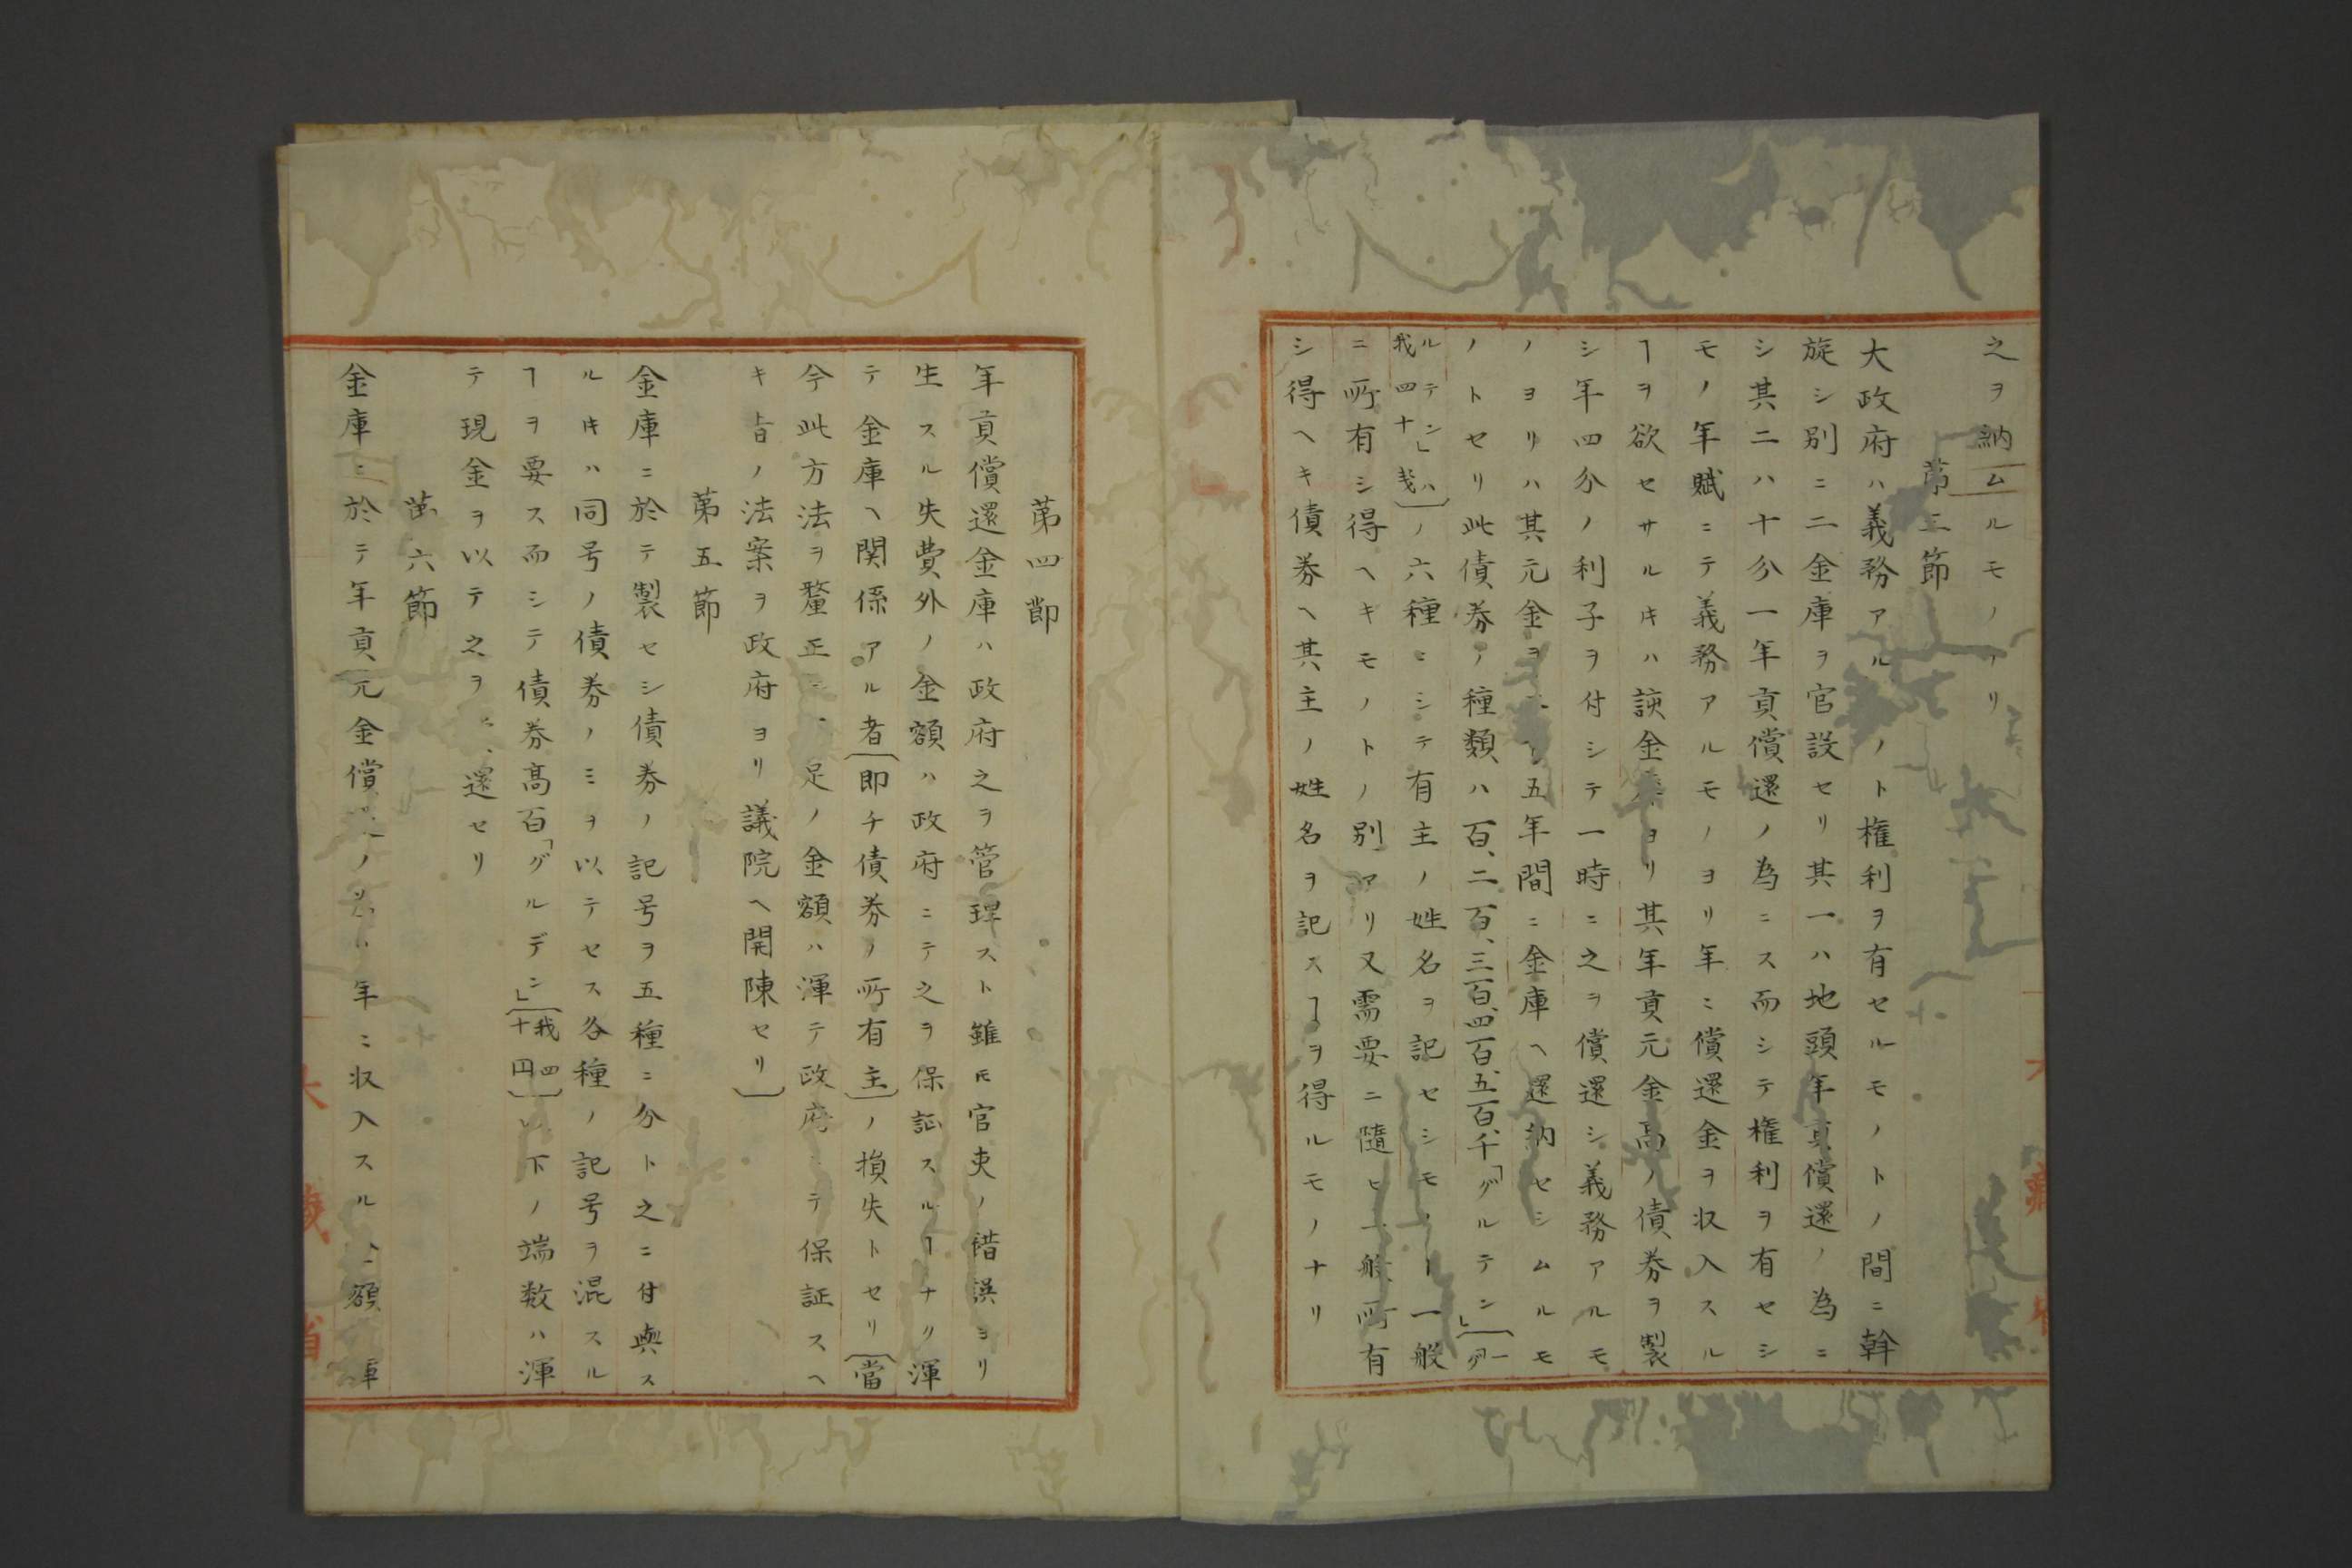 之ヲ納ムルモノアリ
第三節
大政府ハ義務アルモノト権利ヲ有セルモノトノ間ニ斡
旋シ別ニ二金庫ヲ官設セリ其一ハ地頭年貢償還ノ為ニ
シ其二ハ十分一年貢償還ノ為ニス而シテ権利ヲ有セシ
モノ年賦ニテ義務アルモノヨリ年ニ償還金ヲ収入スル
ヿヲ欲セサルキハ該金庫ヨリ其年貢元金高ノ債券ヲ製
シ年四分ノ利子ヲ付シテ一時ニ之ヲ償還シ義務アルモ
ノヨリハ其元金ヲ五年間ニ金庫ヘ還納セシムルモ
ノトセリ此債券ノ種類ハ百、二百、三百、四百、五百、千「グルテン」(一「グ
ルテン」ハ我四十戔)ノ六種ニシテ有主ノ姓名ヲ記セシモノト一般
ニ所有シ得ヘキモノトノ別アリ又需要ニ隨ヒ一般所有
シ得ヘキ債券ヘ其主ノ姓名ヲ記スヿヲ得ルモノナリ
第四節
年貢償還金庫ハ政府之ヲ管理スト雖𪜈官吏ノ錯誤ヨリ
生スル失費外ノ金額ハ政府ニテ之ヲ保証スルヿナク渾
テ金庫ヘ関係アル者(即チ債券ノ所有主)ノ損失トセリ(當
今此方法ヲ釐正シ足ノ金額ハ渾テ政府ニテ保証スヘ
キ旨ノ法案ヲ政府ヨリ議院ヘ開陳セリ)
第五節
金庫ニ於テ製セシ債券ノ記号ヲ五種ニ分ト之ニ付與ス
ルキハ同号ノ債券ノミヲ以テセス各種ノ記号ヲ混スル
ヿヲ要ス而シテ債券高百「グルデン」(我四十円)以下ノ端数ハ渾
テ現金ヲ以テ之ヲ還セリ
第六節
金庫ニ於テ年貢元金償ノ為ハ年ニ収入スル金額庫
大藏省